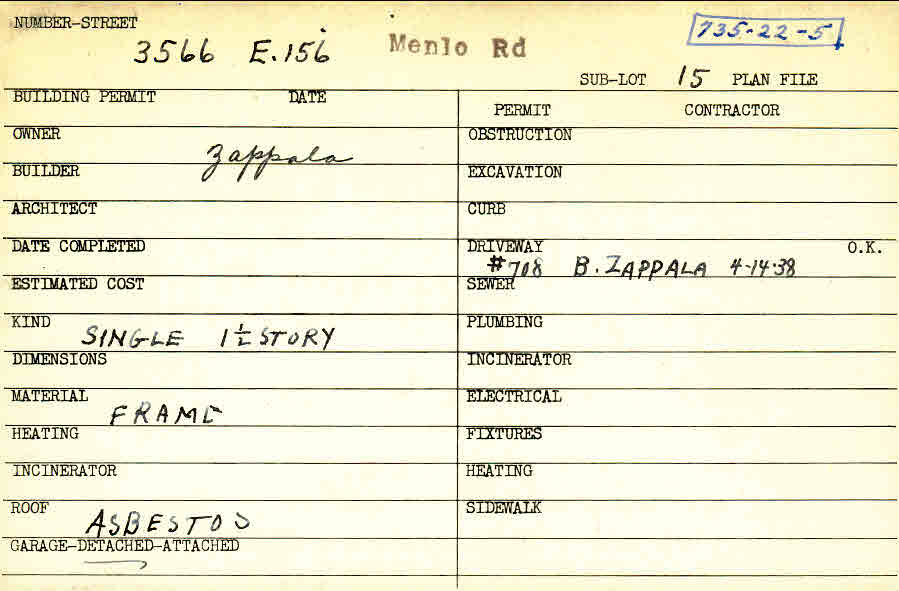 NUMBER-STREET
3566 E.156 Menlo Rd 735-22-5
SUB-LOT 15 PLAN FILE
BUILDING PERMIT DATE
PERMIT CONTRACTOR
OWNER
Zappala
BUILDER
ARCHITECT
DATE COMPLETED
ESTIMATED COST
KIND
SINGLE 1½ STORY
DIMENSIONS
MATERIAL
FRAME
HEATING
INCINERATOR
ROOF
ASBESTOS
GARAGE-DETACHED-ATTACHED
OBSTRUCTION
EXCAVATION
CURB
DRIVEWAY O.K.
#708 B. ZAPPALA 4-14-38
SEWER
PLUMBING
INCINERATOR
ELECTRICAL
FIXTURES
HEATING
SIDEWALK